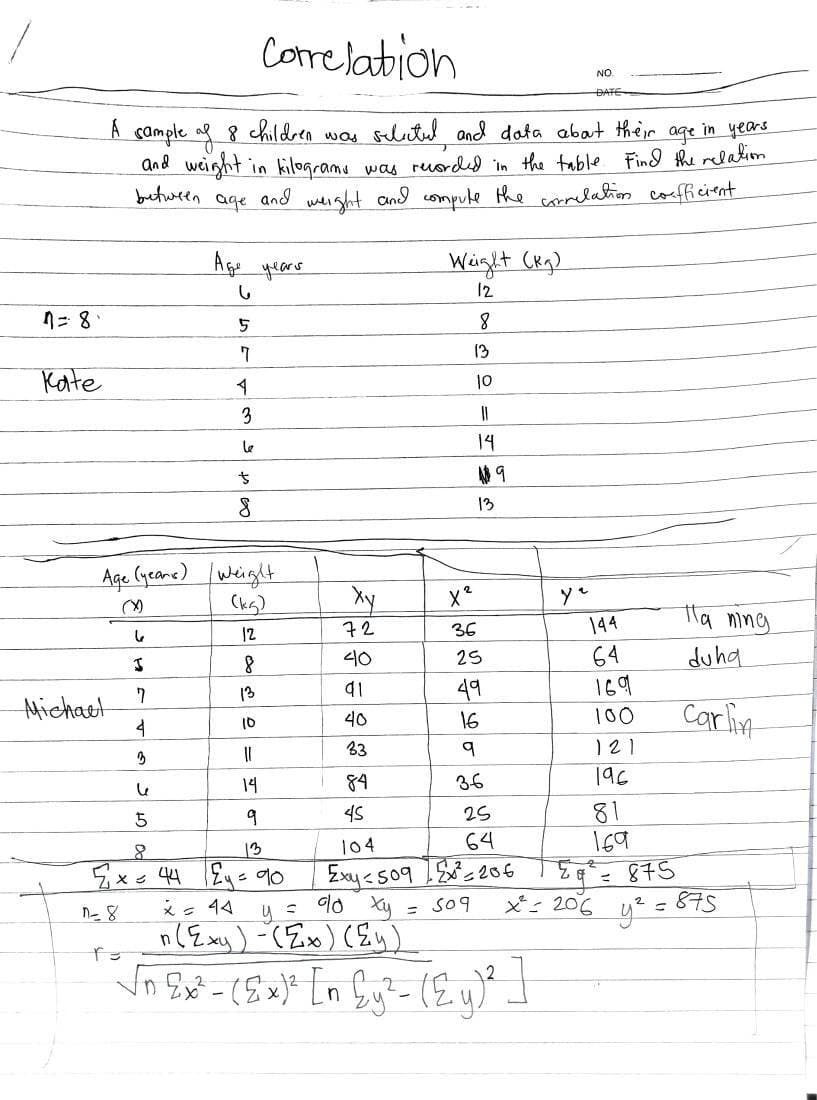 Correlation
NO.
DATE
A sample of 8 children was selected, and data about their age in years
and weight in kilograms was recorded in the table. Find the relation
between age and weight and compute the correlation coefficient
Age years Weight (kg)
6 12
n = 8. 5 8
7 13
Kate 4 10
3 11
6 14
5 9
8 13
Age (years) Weight
(x) (kg) Xy X² y²
6 12 72 36 144 lla ning
5 8 40 25 64 duha
Michael 7 13 91 49 169
4 10 40 16 100 Carlin
3 11 33 9 121
6 14 84 36 196
5 9 45 25 81
8 13 104 64 169
Σx = 44 Σy = 90 Σxy = 509 Σx² = 206 Σy² = 875
n = 8 x = 44 y = 90 xy = 509 x² = 206 y² = 875
r = n(Σxy) - (Σx) (Σy)
√n Σx² - (Σx)² [n Σy² - (Σy)²]